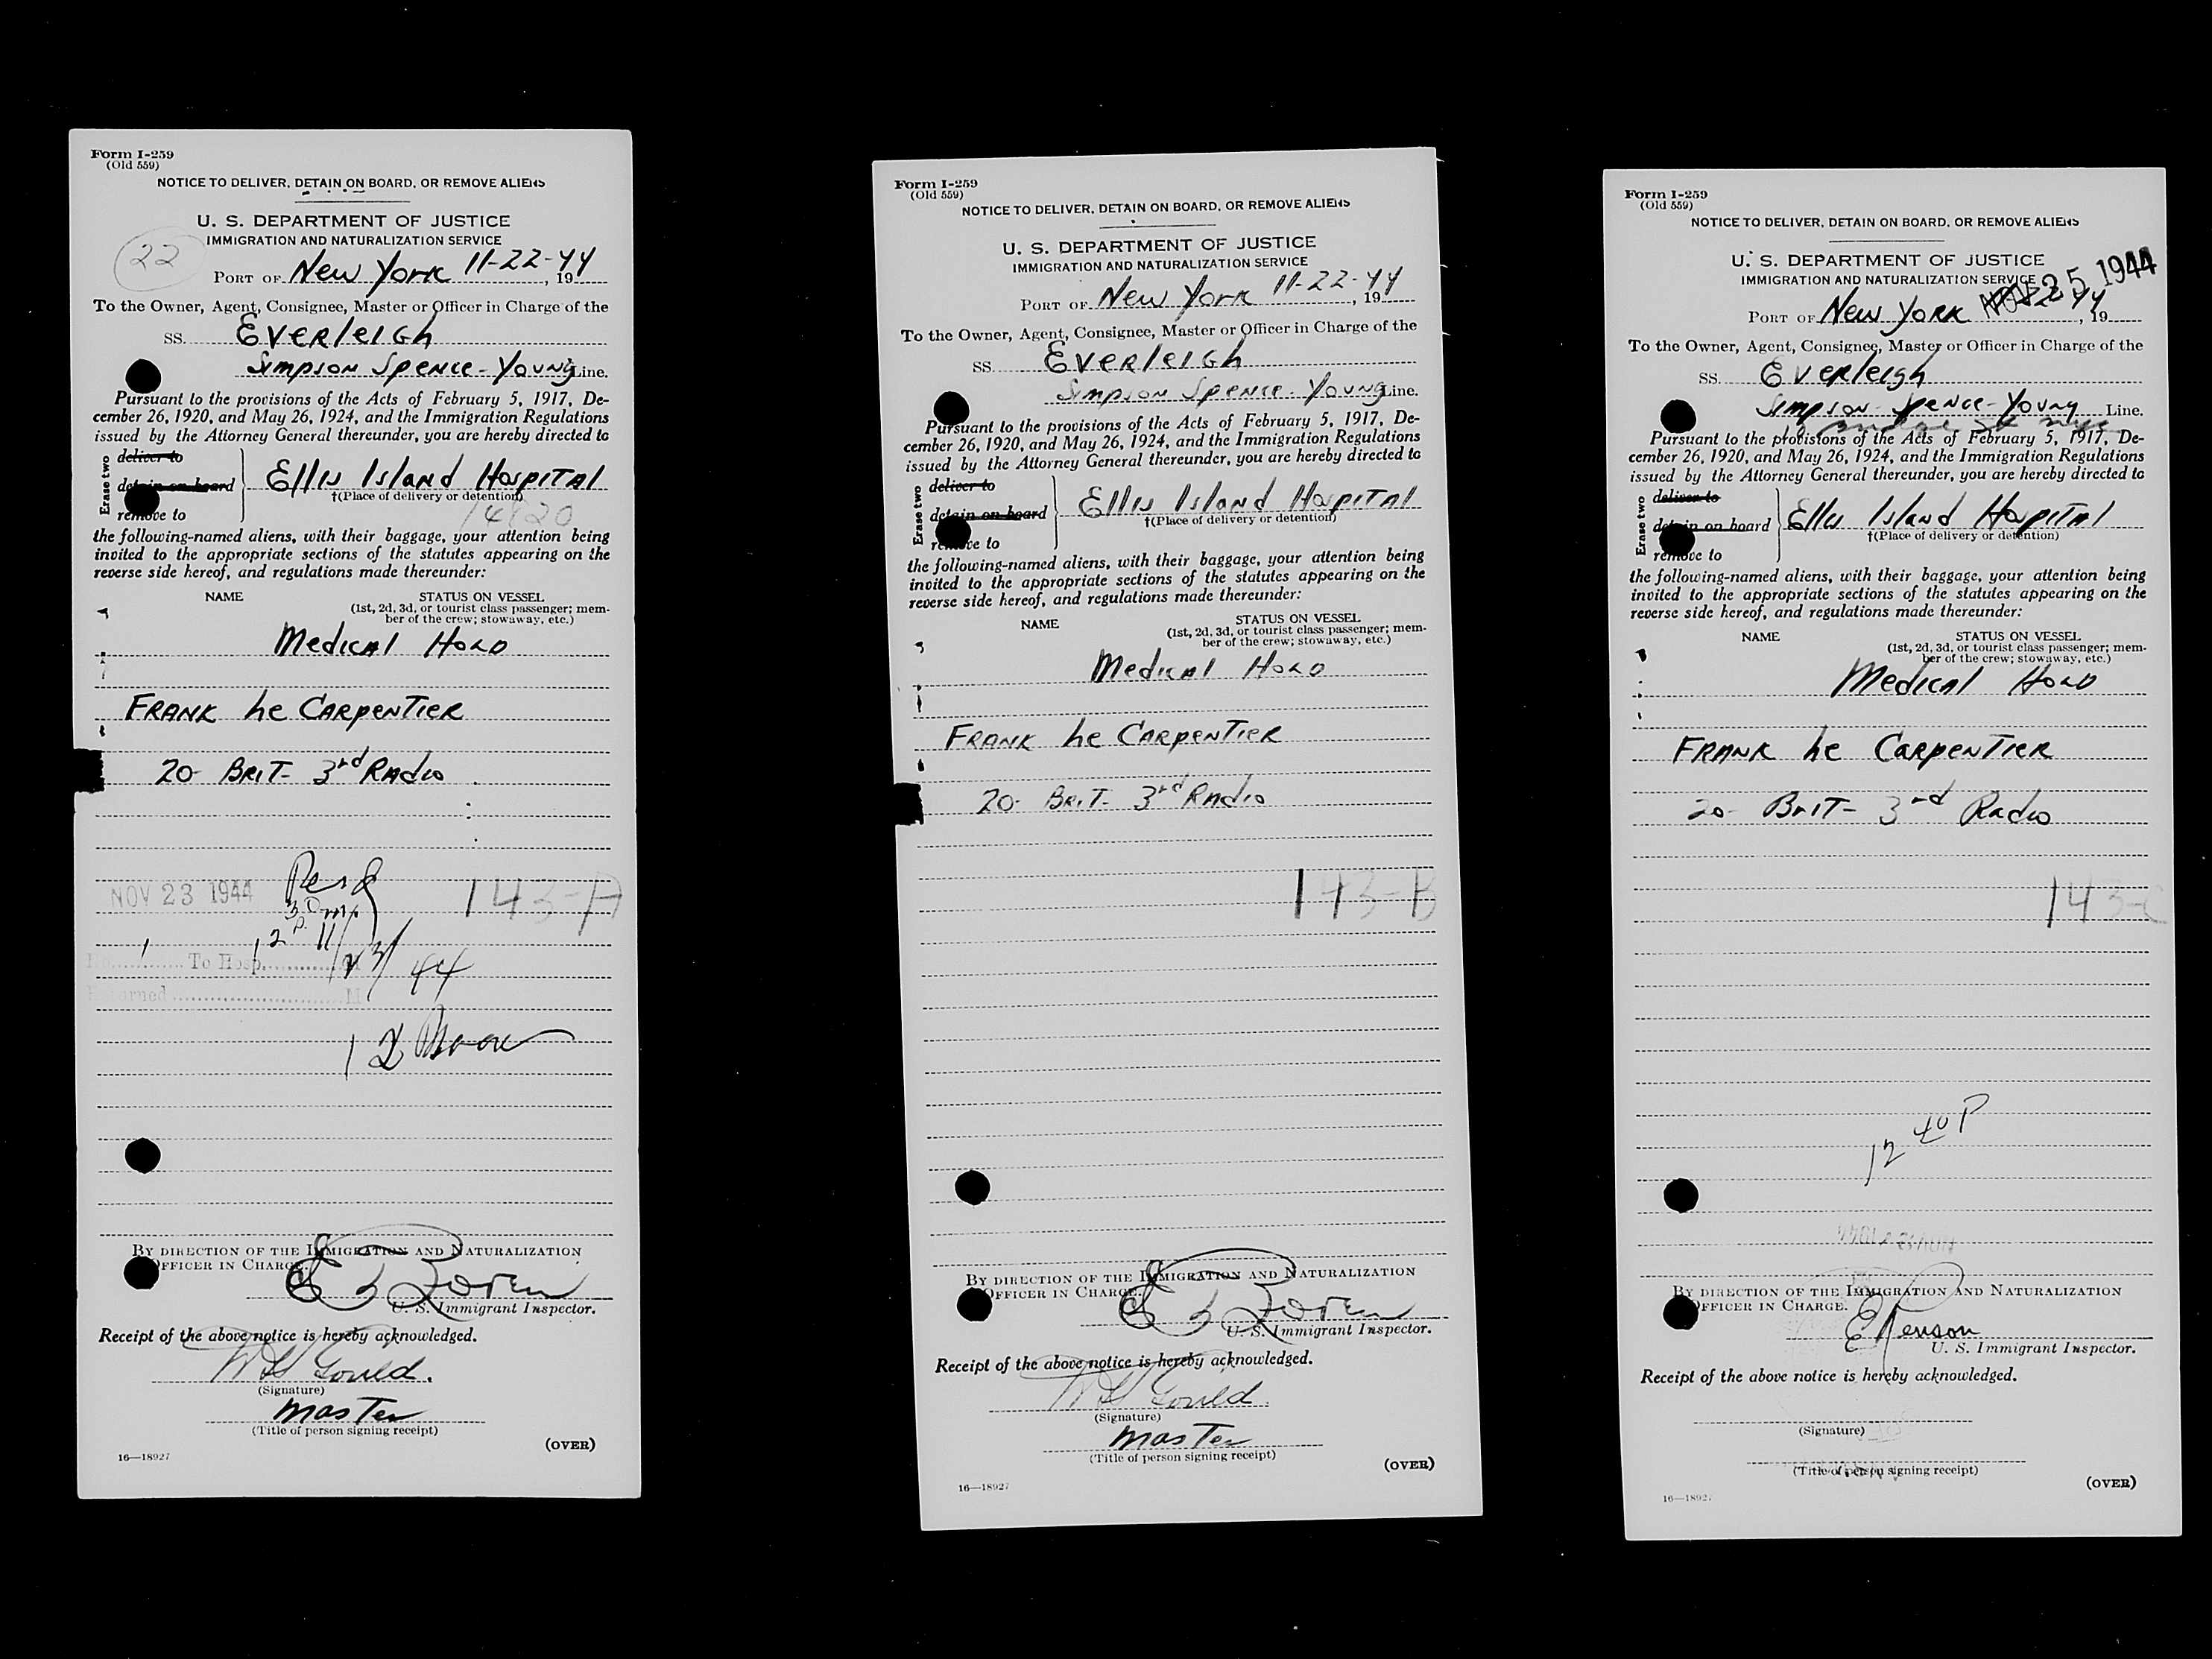 Form I-259
(Old 559)
NOTICE TO DELIVER, DETAIN ON BOARD, OR REMOVE ALIENS
U. S. DEPARTMENT OF JUSTICE
22
IMMIGRATION AND NATURALIZATION SERVICE
PORT OF New York 11-22-44, 19
To the Owner, Agent, Consignee, Master or Officer in Charge of the
SS. Everleigh
Simpson Spence-Young Line.
Pursuant to the provisions of the Acts of February 5, 1917, De-
cember 26, 1920, and May 26, 1924, and the Immigration Regulations
issued by the Attorney General thereunder, you are hereby directed to
Erase two
deliver to
detain on board
remove to
Ellis Island Hospital
†(Place of delivery or detention)
14820
the following-named aliens, with their baggage, your attention being
invited to the appropriate sections of the statutes appearing on the
reverse side hereof, and regulations made thereunder:
NAME STATUS ON VESSEL
(1st, 2d, 3d, or tourist class passenger; mem-
ber of the crew; stowaway, etc.)
Medical Hold
FRANK Le CARPENTIER
20- BRIT- 3rd Radio
NOV 23 1944
143-A
11/23/44
To Hosp.
Returned M
BY DIRECTION OF THE IMMIGRATION AND NATURALIZATION
OFFICER IN CHARGE.
U. S. Immigrant Inspector.
Receipt of the above notice is hereby acknowledged.
Gould.
(Signature)
Master
(Title of person signing receipt)
(OVER)
16—18927
Form I-259
(Old 559)
NOTICE TO DELIVER, DETAIN ON BOARD, OR REMOVE ALIENS
U. S. DEPARTMENT OF JUSTICE
IMMIGRATION AND NATURALIZATION SERVICE
PORT OF New York 11-22-44, 19
To the Owner, Agent, Consignee, Master or Officer in Charge of the
SS. Everleigh
Simpson Spence-Young Line.
Pursuant to the provisions of the Acts of February 5, 1917, De-
cember 26, 1920, and May 26, 1924, and the Immigration Regulations
issued by the Attorney General thereunder, you are hereby directed to
Erase two
deliver to
detain on board
remove to
Ellis Island Hospital
†(Place of delivery or detention)
the following-named aliens, with their baggage, your attention being
invited to the appropriate sections of the statutes appearing on the
reverse side hereof, and regulations made thereunder:
NAME STATUS ON VESSEL
(1st, 2d, 3d, or tourist class passenger; mem-
ber of the crew; stowaway, etc.)
Medical Hold
FRANK Le CARPENTIER
20- BRIT- 3rd Radio
143-B
BY DIRECTION OF THE IMMIGRATION AND NATURALIZATION
OFFICER IN CHARGE.
U. S. Immigrant Inspector.
Receipt of the above notice is hereby acknowledged.
Gould.
(Signature)
Master
(Title of person signing receipt)
(OVER)
16—18927
Form I-259
(Old 559)
NOTICE TO DELIVER, DETAIN ON BOARD, OR REMOVE ALIENS
U. S. DEPARTMENT OF JUSTICE
IMMIGRATION AND NATURALIZATION SERVICE
NOV 25 1944
PORT OF New York 44, 19
To the Owner, Agent, Consignee, Master or Officer in Charge of the
SS. Everleigh
Simpson-Spence-Young Line.
Pursuant to the provisions of the Acts of February 5, 1917, De-
cember 26, 1920, and May 26, 1924, and the Immigration Regulations
issued by the Attorney General thereunder, you are hereby directed to
Erase two
deliver to
detain on board
remove to
Ellis Island Hospital
†(Place of delivery or detention)
the following-named aliens, with their baggage, your attention being
invited to the appropriate sections of the statutes appearing on the
reverse side hereof, and regulations made thereunder:
NAME STATUS ON VESSEL
(1st, 2d, 3d, or tourist class passenger; mem-
ber of the crew; stowaway, etc.)
Medical Hold
FRANK Le CARPENTIER
20- BRIT- 3rd Radio
143-C
12 40 P
BY DIRECTION OF THE IMMIGRATION AND NATURALIZATION
OFFICER IN CHARGE.
U. S. Immigrant Inspector.
Receipt of the above notice is hereby acknowledged.
(Signature)
(Title of person signing receipt)
(OVER)
16—18927